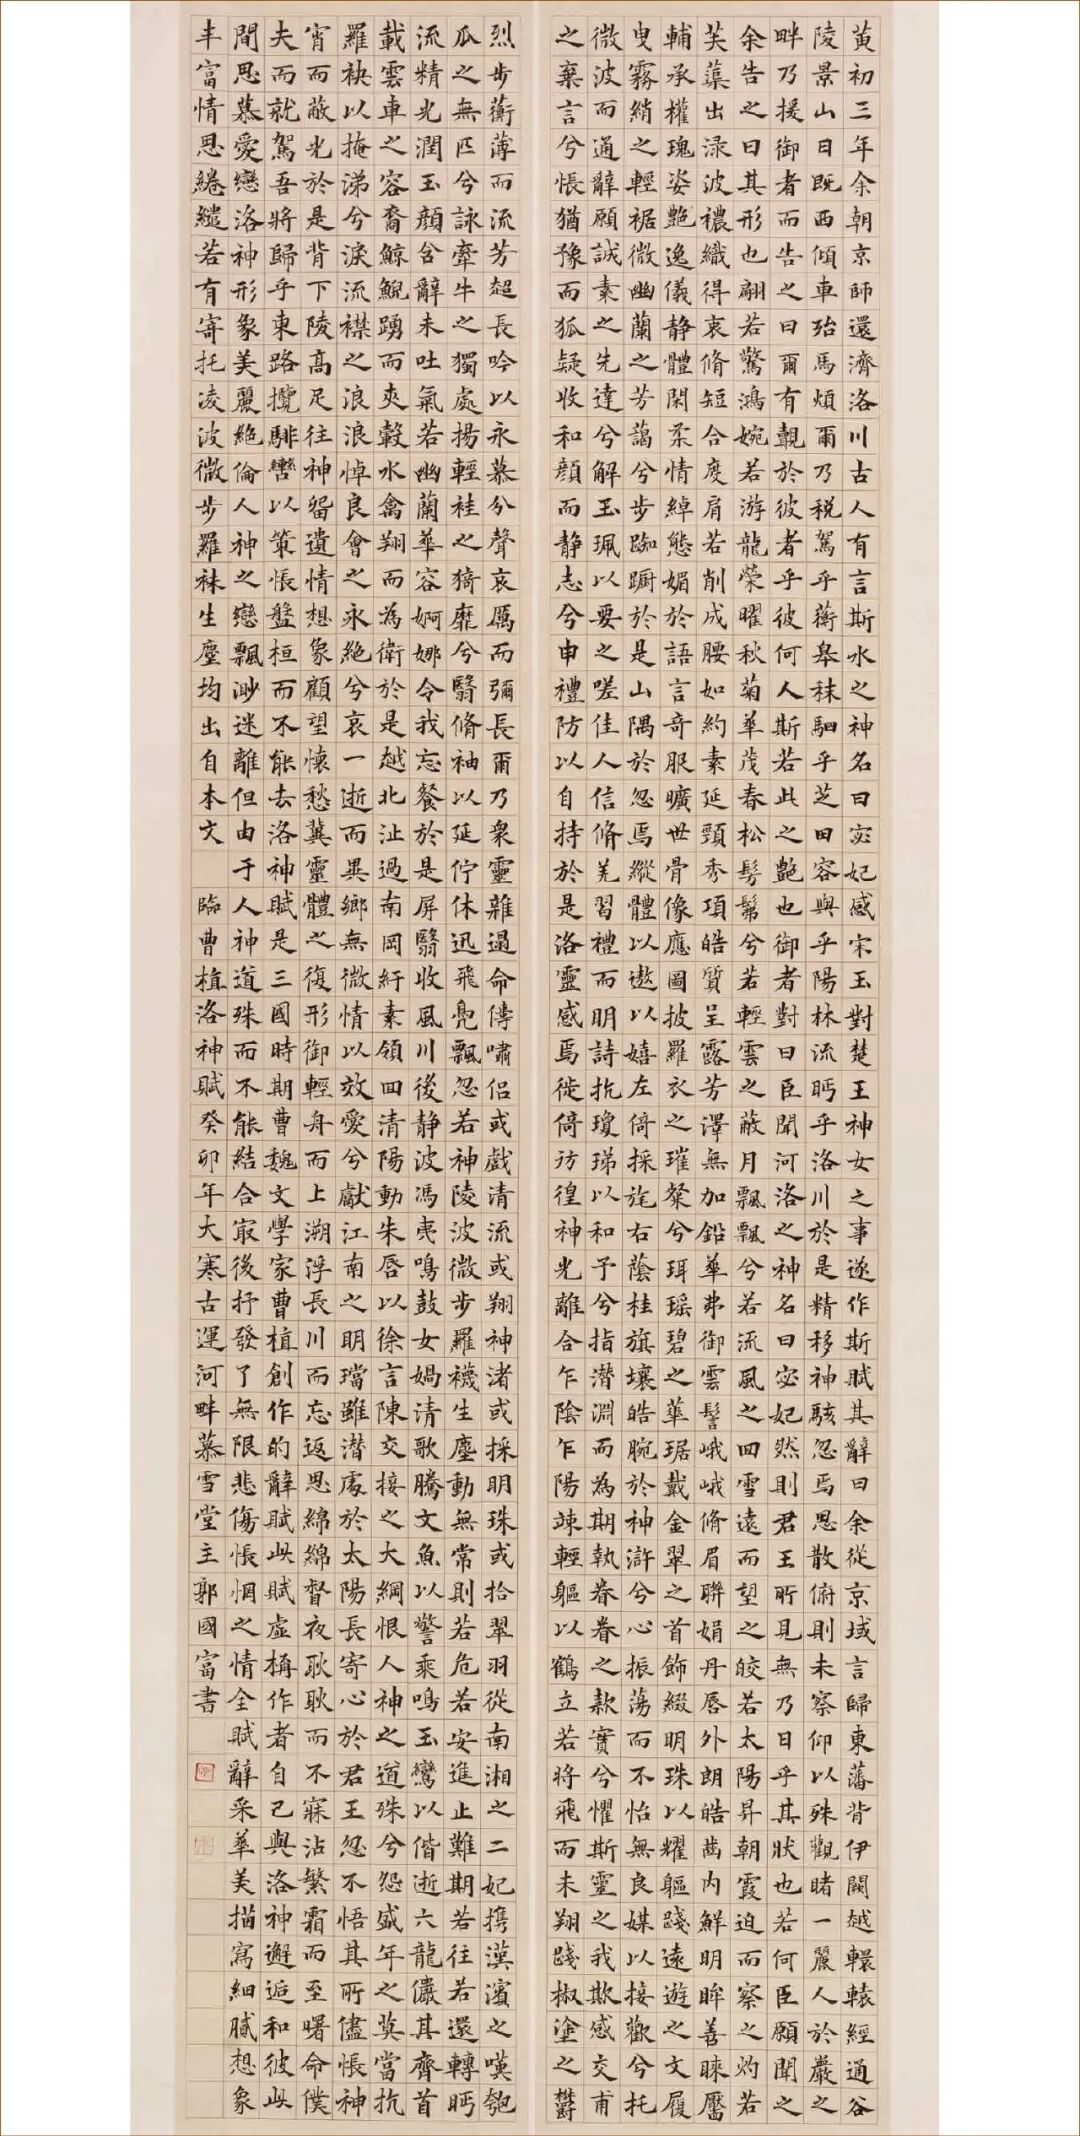 黄初三年余朝京師還濟洛川古人有言斯水之神名曰宓妃感宋玉對楚王神女之事遂作斯賦其辭曰余從京域言歸東藩背伊闕越轘轅經通谷
陵景山日既西傾車殆馬煩爾乃税駕乎蘅皋秣駟乎芝田容與乎陽林流眄乎洛川於是精移神駭忽焉思散俯則未察仰以殊觀睹一麗人於巖之
畔乃援御者而告之曰爾有覿於彼者乎彼何人斯若此之艷也御者對曰臣聞河洛之神名曰宓妃然則君王所見無乃日乎其狀也若何臣願聞之
余告之曰其形也翩若驚鴻婉若游龍榮曜秋菊華茂春松髣髴兮若輕雲之蔽月飄飄兮若流風之回雪遠而望之皎若太陽昇朝霞迫而察之灼若
芙蕖出淥波襛纖得衷脩短合度肩若削成腰如約素延頸秀項皓質呈露芳澤無加鉛華弗御雲髻峨峨脩眉聯娟丹唇外朗皓齒内鮮明眸善睞靨
輔承權瑰姿艷逸儀静體閑柔情綽態媚於語言奇服曠世骨像應圖披羅衣之璀粲兮珥瑶碧之華琚戴金翠之首飾綴明珠以耀軀踐遠遊之文履
曳霧綃之輕裾微幽蘭之芳藹兮步踟蹰於是山隅於忽焉縱體以遨以嬉左倚採旄右蔭桂旗壤皓腕於神滸兮心振蕩而不怡無良媒以接歡兮托
微波而通辭願誠素之先達兮解玉珮以要之嗟佳人信脩羌習禮而明詩抗瓊珶以和予兮指潜淵而為期執眷眷之款實兮懼斯靈之我欺感交甫
之棄言兮悵猶豫而狐疑收和顔而静志兮申禮防以自持於是洛靈感焉徙倚彷徨神光離合乍陰乍陽竦輕軀以鶴立若將飛而未翔踐椒塗之鬱
烈步蘅薄而流芳超長吟以永慕兮聲哀厲而彌長爾乃衆靈雜遝命儔嘯侣或戲清流或翔神渚或採明珠或拾翠羽從南湘之二妃携漢濱之嘆匏
瓜之無匹兮詠牽牛之獨處揚輕袿之猗靡兮翳脩袖以延佇休迅飛鳧飄忽若神陵波微步羅襪生塵動無常則若危若安進止難期若往若還轉眄
流精光潤玉顔含辭未吐氣若幽蘭華容婀娜令我忘餐於是屏翳收風川後静波馮夷鳴鼓女媧清歌騰文魚以警乘鳴玉鸞以偕逝六龍儼其齊首
載雲車之容裔鯨鯢踴而夾轂水禽翔而為衛於是越北沚過南岡紆素領回清陽動朱唇以徐言陳交接之大綱恨人神之道殊兮怨盛年之莫當抗
羅袂以掩涕兮淚流襟之浪浪悼良會之永絶兮哀一逝而異鄉無微情以效愛兮獻江南之明璫雖潜處於太陽長寄心於君王忽不悟其所儘悵神
宵而蔽光於是背下陵高足往神留遺情想象顧望懷愁冀靈體之復形御輕舟而上溯浮長川而忘返思綿綿督夜耿耿而不寐沾繁霜而至曙命僕
夫而就駕吾將歸乎東路攬騑轡以策悵盤桓而不能去洛神賦是三國時期曹魏文學家曹植創作的辭賦此賦虚構作者自己與洛神邂逅和彼此
間思慕愛戀洛神形象美麗絶倫人神之戀飄渺迷離但由于人神道殊而不能結合最後抒發了無限悲傷悵惘之情全賦辭采華美描寫細膩想象
丰富情思綣繾若有寄托凌波微步羅袜生塵均出自本文 臨曹植洛神賦癸卯年大寒古運河畔慕雪堂主郭國富書